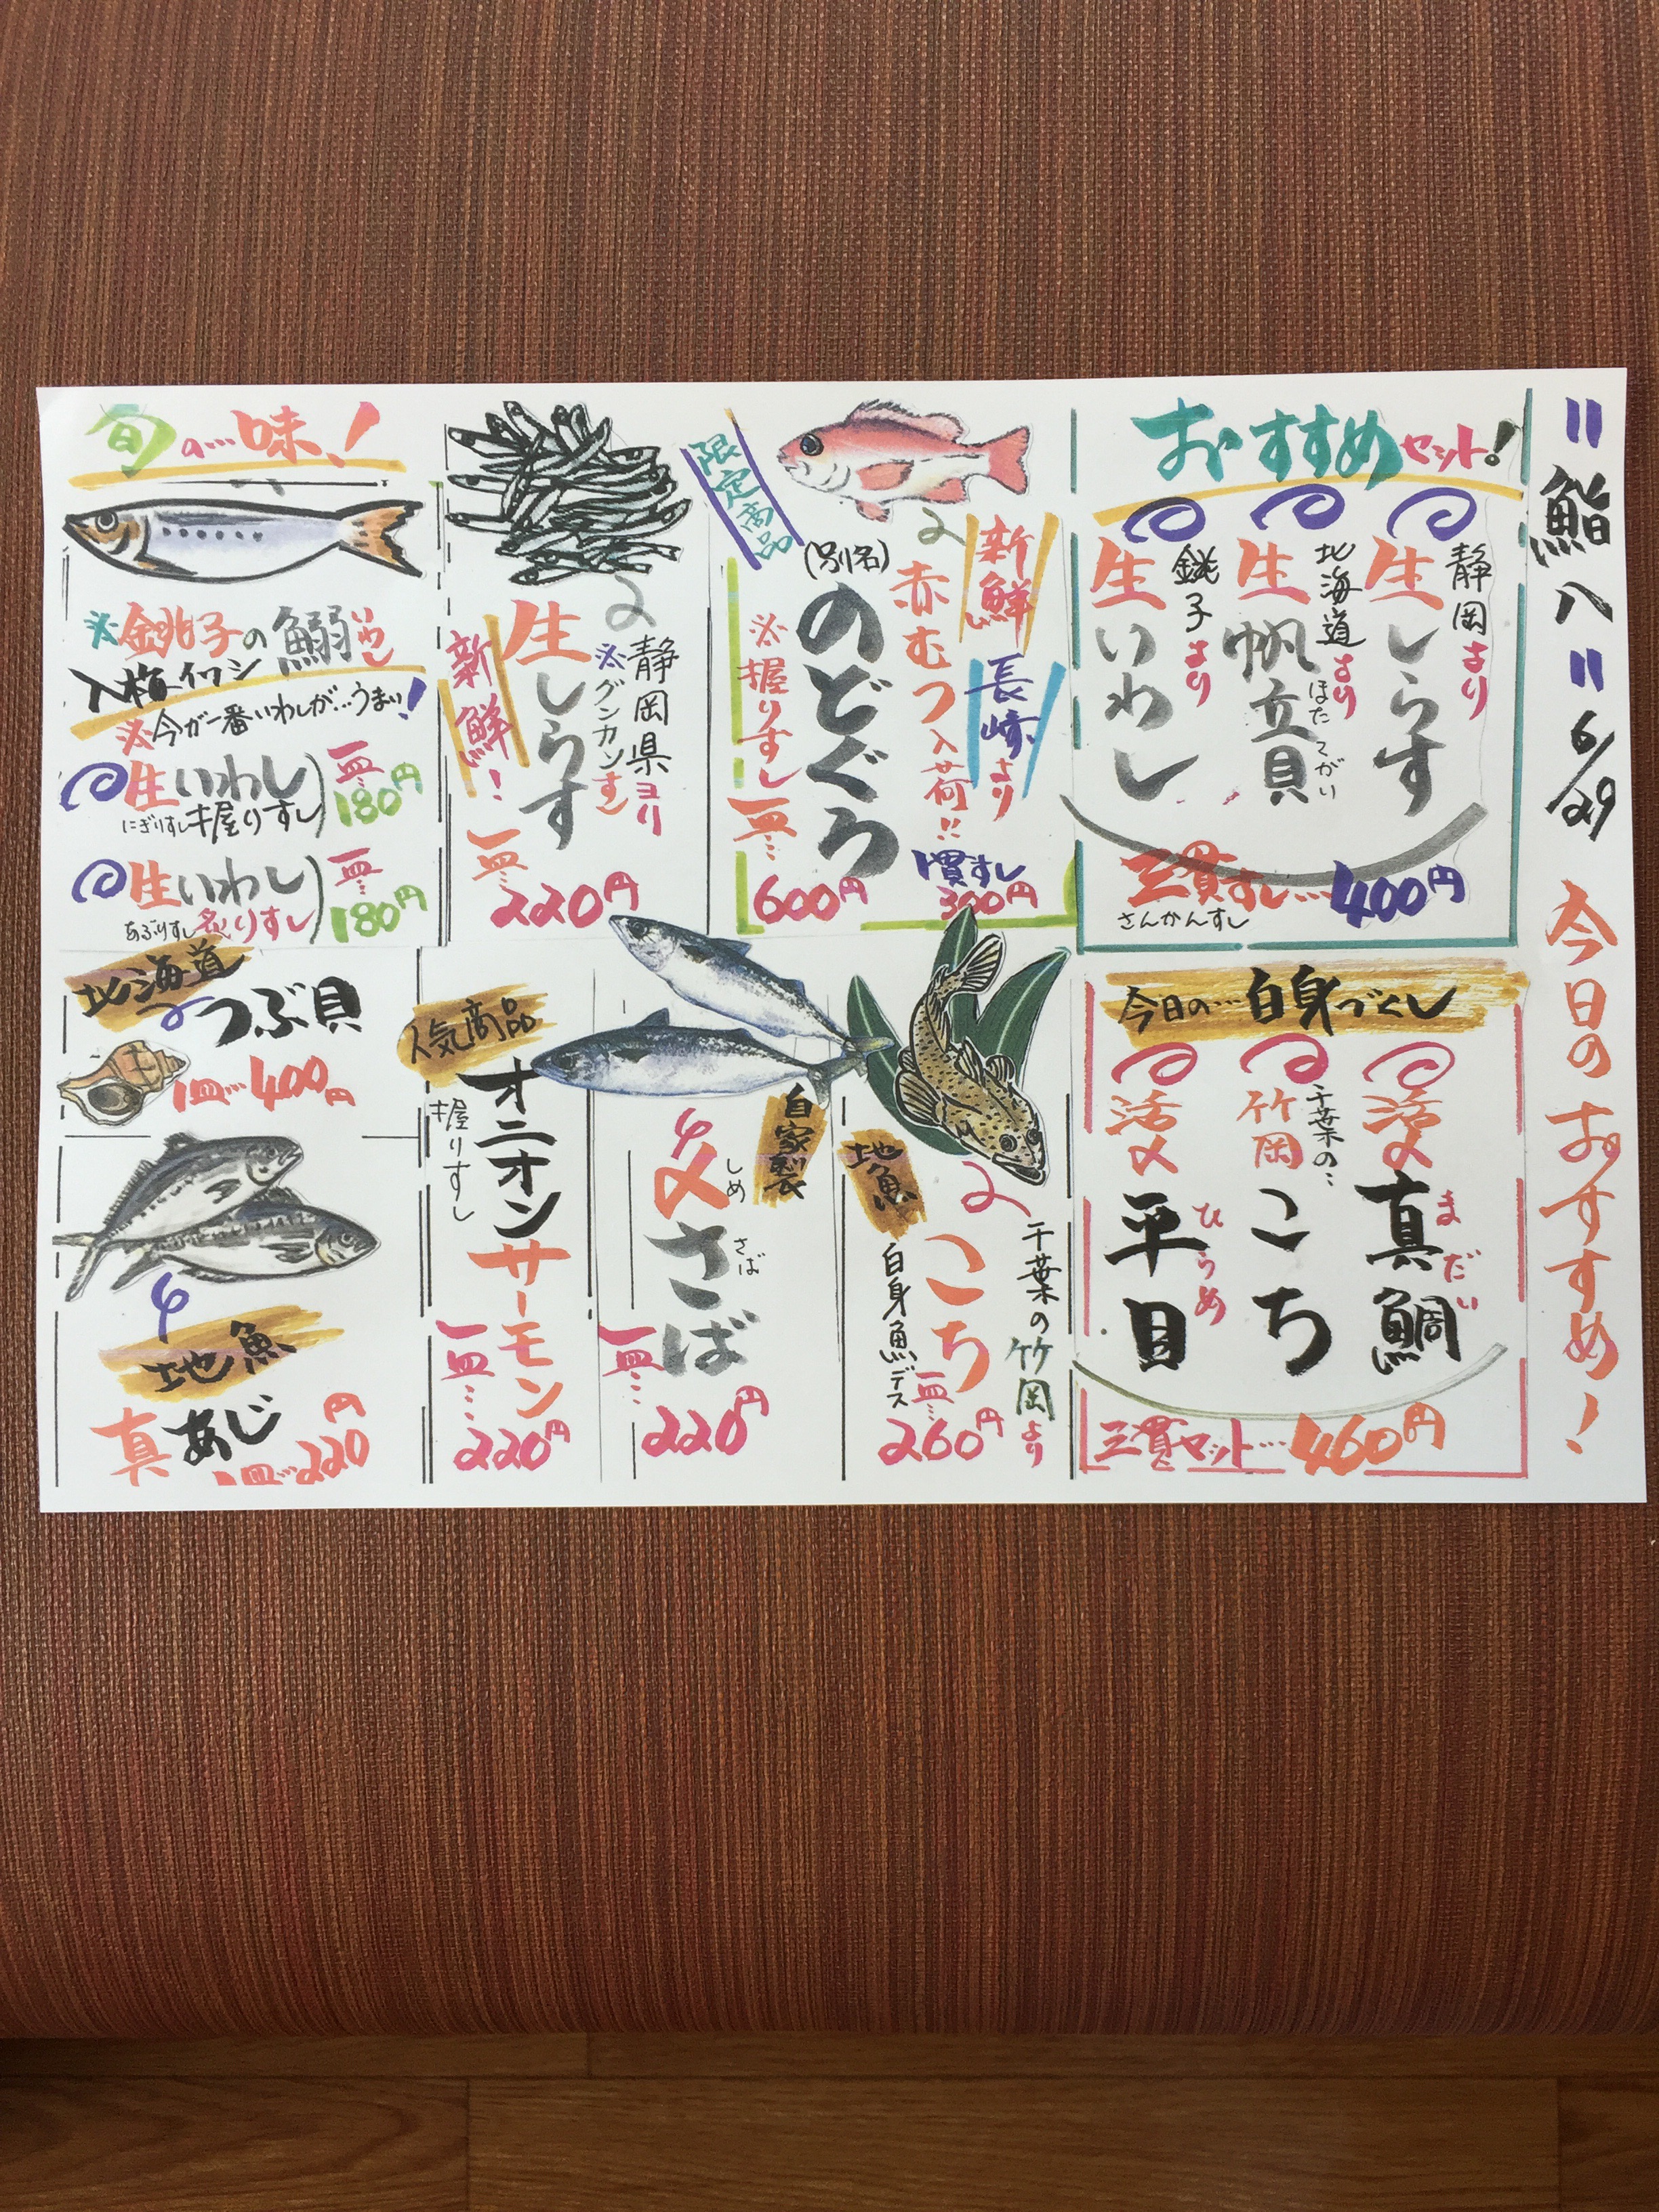 "鮨八" 6/29 今日のおすすめ!
おすすめセット!
静岡より
生しらす
北海道より
生帆立貝
ほたてがい
銚子より
生いわし
三貫すし…400円
さんかんすし
限定商品
新鮮
長崎より
赤むつ入荷!!
(別名)
のどぐろ
※握りすし
一皿…
600円
1貫すし
300円
静岡県ヨリ
※グンカンすし
生しらす
新鮮!
一皿…
220円
旬の…味!
※銚子の鰯いわし
入梅イワシ
※今が一番いわしが…うまい!
生いわし
にぎりすし握りすし
一皿…
180円
生いわし
あぶりすし炙りすし
一皿…
180円
今日の…白身づくし
活〆
真鯛
まだい
千葉の…
竹岡
こち
活〆
平目
ひらめ
三貫セット…460円
地魚
千葉の竹岡より
こち
白身魚デス
一皿…
260円
自家製
〆さば
しめ
さば
一皿…
220円
人気商品
オニオンサーモン
握りすし
一皿…
220円
北海道
つぶ貝
1皿…400円
地魚
真あじ
1皿…220円